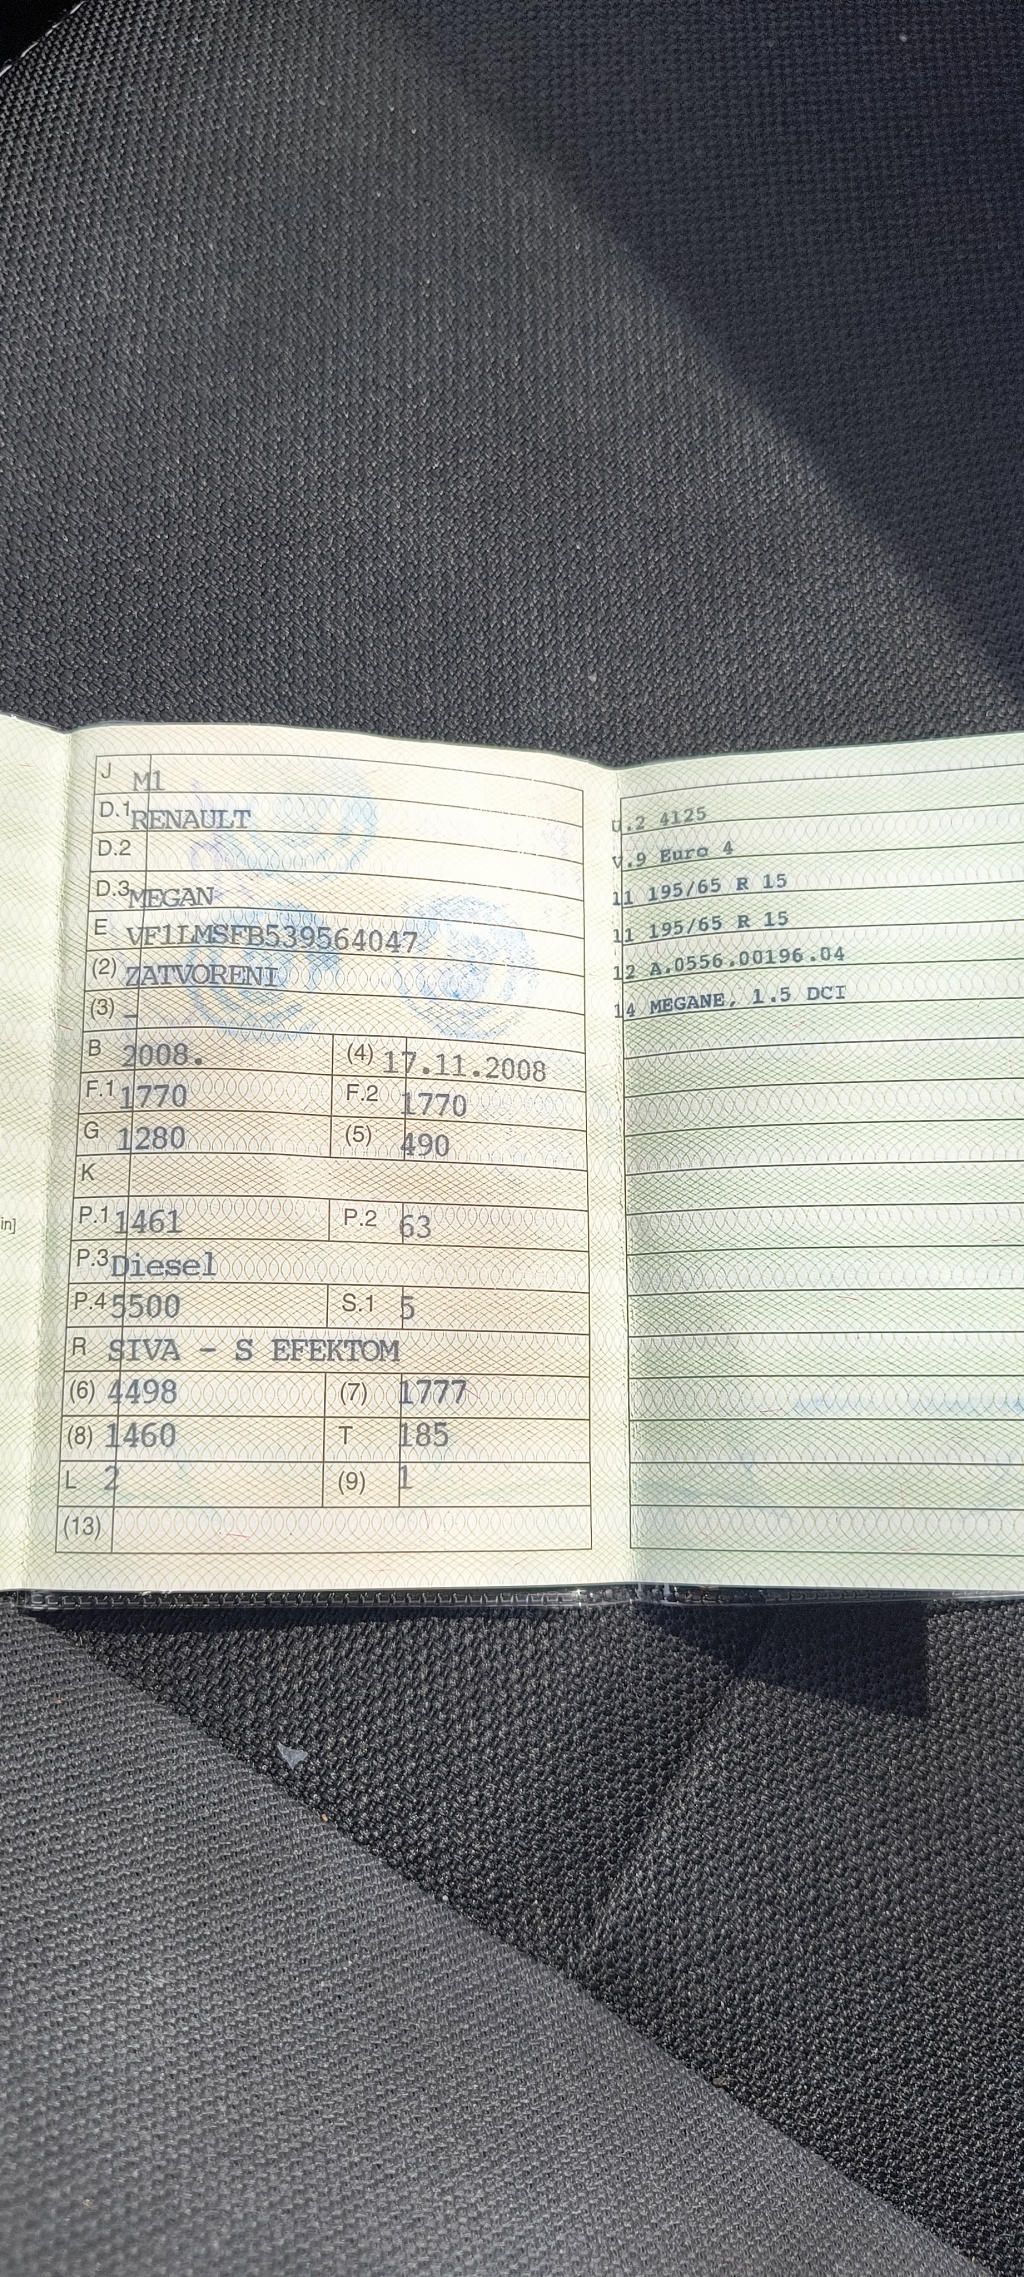 J M1
D.1 RENAULT
D.2
D.3 MEGAN
E VF1LMSFB539564047
(2) ZATVORENI
(3) –
B 2008. (4) 17.11.2008
F.1 1770 F.2 1770
G 1280 (5) 490
K
P.1 1461 P.2 63
P.3 Diesel
P.4 5500 S.1 5
R SIVA – S EFEKTOM
(6) 4498 (7) 1777
(8) 1460 T 185
L 2 (9) 1
(13)
in]
U.2 4125
V.9 Euro 4
11 195/65 R 15
11 195/65 R 15
12 A.0556.00196.04
14 MEGANE, 1.5 DCI